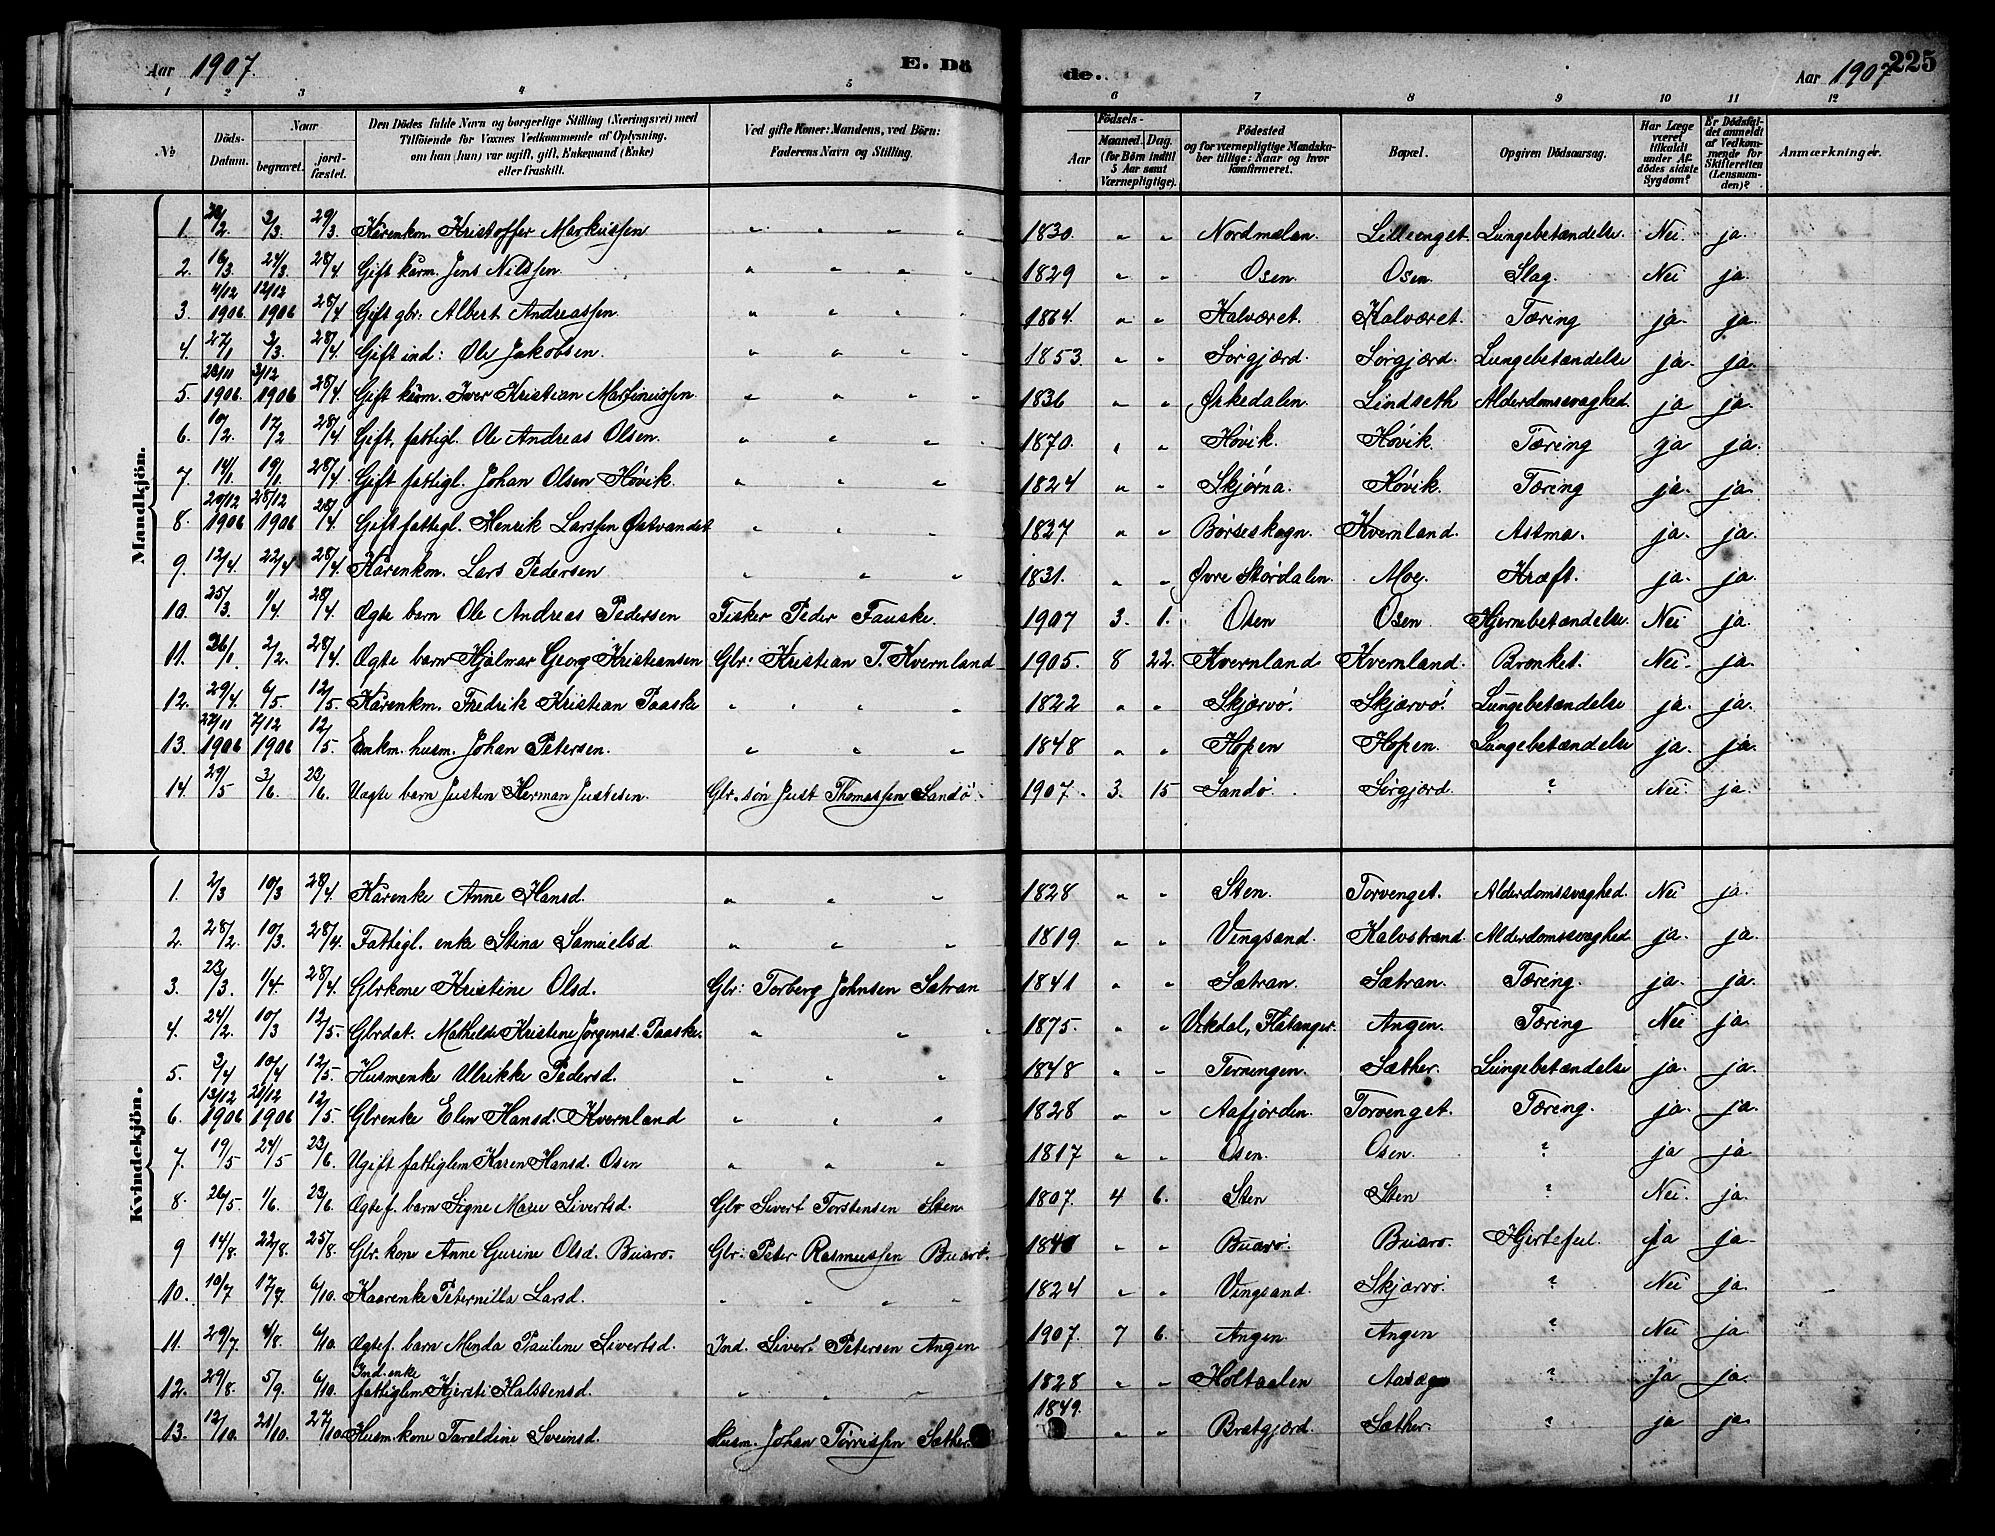 Aar 1907. E. Dö de. Aar 1907 225
1 2 3 4 5 6 7 8 9 10 11 12
№ Döds-Datum. Naar begravet. jord-fæstet. Den Dödes fulde Navn og borgerlige Stilling (Næringsvei) med Tilföiende for Voxnes Vedkommende af Oplysning, om han (hun) var ugift, gift, Enkemand (Enke) eller fraskilt. Ved gifte Koner: Mandens, ved Börn: Faderens Navn og Stilling. Födsels- Aar Maaned. Dag. (for Börn indtil 5 Aar samt Værnepligtige). Födested og for værnepligtige Mandskaber tillige: Naar og hvor konfirmeret. Bopæl. Opgiven Dödsaarsag. Har Læge været tilkaldt under Afdödes sidste Sygdom? Er Dödsfaldet anmeldt af Vedkommende for Skifteretten (Lensmanden)? Anmærkninger.
Mandkjön.
1. 2/3 29/3 Kårenkm. Kristoffer Markussen " " " " 1830. " " Nordmelan. Lilleenget Lungebetændelse Nei. ja.
2. 16/3. 24/3 28/4 Gift kårm. Jens Nilssen. " " " " 1829 " " Osen. Osen. Slag. Nei ja.
3. 4/12 1906 12/12 1906 28/4 Gift gbr: Albert Andreassen. " " " " 1864. " " Kalværet. Kalværet. Tæring ja. ja.
4. 27/1 3/3. 28/4. Gift ind: Ole Jakobsen. " " " " 1853. " " Sørgjærd. Sørgjærd. Lungebetændelse ja. ja.
5. 23/11 1906. 3/12 1906 28/4. Gift kårm. Iver Kristian Martinussen " " " " 1836 " " Ørkedalen. Lindseth Alderdomssvaghed. ja ja.
6. 10/2. 17/2 28/4 Gift, fattigl. Ole Andreas Olsen. " " " 1870. " " Høvik. Høvik. Tæring ja ja.
7. 14/1 19/1. 28/4. Gift fattigl. Johan Olsen Høvik. " " " 1824 " " Skjørna. Høvik. Tæring ja. ja.
8. 20/12 1906 28/12 1906 28/4. Gift fattigl. Henrik Larssen Østvandet " " " 1837 " " Børseskogn. Kvernland. Astma. ja. ja.
9. 12/4. 22/4 28/4. Kårenkm. Lars Pedersen " " " 1831. " " Øvre Størdalen. Moe. Kræft. ja. ja.
10. 25/3. 1/4. 28/4. Ægte barn Ole Andreas Pedersen Fisker Peder Fauske. 1907 3. 1. Osen Osen Hjernebetændelse. Nei ja.
11. 26/1. 2/2. 28/4. Ægte barn Hjalmar Georg Kristiansen Gbr: Kristian T. Kvernland 1905. 8 22. Kvernland Kvernland. Bronket. Nei. ja
12. 29/4. 6/5. 12/5. Kårenkm. Fredrik Kristian Paaske " " " " 1822 " " Skjærvø. Skjærvø. Lungebetændelse ja. ja.
13. 27/11 1906 7/12 1906 12/5 Enkm. husm. Johan Petersen. " " " 1848 " " Hopen Hopen. Lungebetændelse ja. ja.
14. 29/5 3/6. 23/6. Uægte barn Justen Herman Justesen. Gbr.søn Just Thomassen Sandø. 1907. 3. 15 Sandø. Sørgjærd. ? Nei. ja.
Kvindekjön.
1. 2/3 10/3 28/4 Kårenke Anne Hansd. " " " 1828 " " Sten. Torvenget. Alderdomssvaghed. Nei ja.
2. 28/2. 10/3. 28/4. Fattigl. enke Stina Samuelsd " " " 1819. " " Vingsand. Kalvstrand. Alderdomssvaghed ja. ja.
3. 23/3. 1/4. 28/4 Gbrkone Kristine Olsd. Gbr: Torberg Johnsen Sætran 1841 " " Sætran. Sætran. Tæring. ja. ja.
4. 24/2 10/3 12/5. Gbrdat. Mathilde Kristine Jørgensd. Paaske. " " " 1875. " " Utkdal, Flatanger. Angen. Tæring Nei ja.
5. 3/4 10/4 12/5. Husmenke Ulrikke Pedersd. " " " 1848 " " Terningen. Sæther. Lungebetændelse ja. ja.
6 13/12 1906 21/12 1906 12/5 Gbrenke Elen Hansd. Kvernland " " " 1828 " " Aafjorden. Torvenget. Tæring. ja. ja.
7. 19/5 24/5 23/6. Ugift fattiglem Karen Hansd. Osen " " " 1817 " " Osen. Osen. ? ja ja.
8. 26/5. 1/6. 23/6. Ægtef. barn Signe Marie Sivertsd. Gbr Sivert Torstensen Sten. 1807. 4 6. Sten Sten ? Nei. ja.
9 14/8. 22/8. 25/8. Gbr. kone Anne Gurine Olsd. Buarø. Gbr: Peter Rasmussen Buarø. 1840 " " Buarø. Buarø. Hjertefeil. ja ja.
10. 10/7 17/7. 6/10. Kaarenke Peternilla Larsd. " " " " 1824 " " Vingsand. Skjærvø. ? Nei ja.
11. 29/7. 4/8. 6/10. Ægtef. barn Minda Pauline Sivertsd. Ind. Sivert Petersen Angen 1907. 7 6. Angen. Angen ? Nei ja
12. 29/8. 5/9. 6/10. Ind. enke fattiglem Kjersti Halstensd. " " " 1828 " " Holtaalen ? ja ja.
13. 12/10. 21/10. 27/10. Husm. kone Taraldine Sveinsd. Husm. Johan Tørrissen Sæther 1849. " " Brætgjærd. Sæther. ? ja ja.